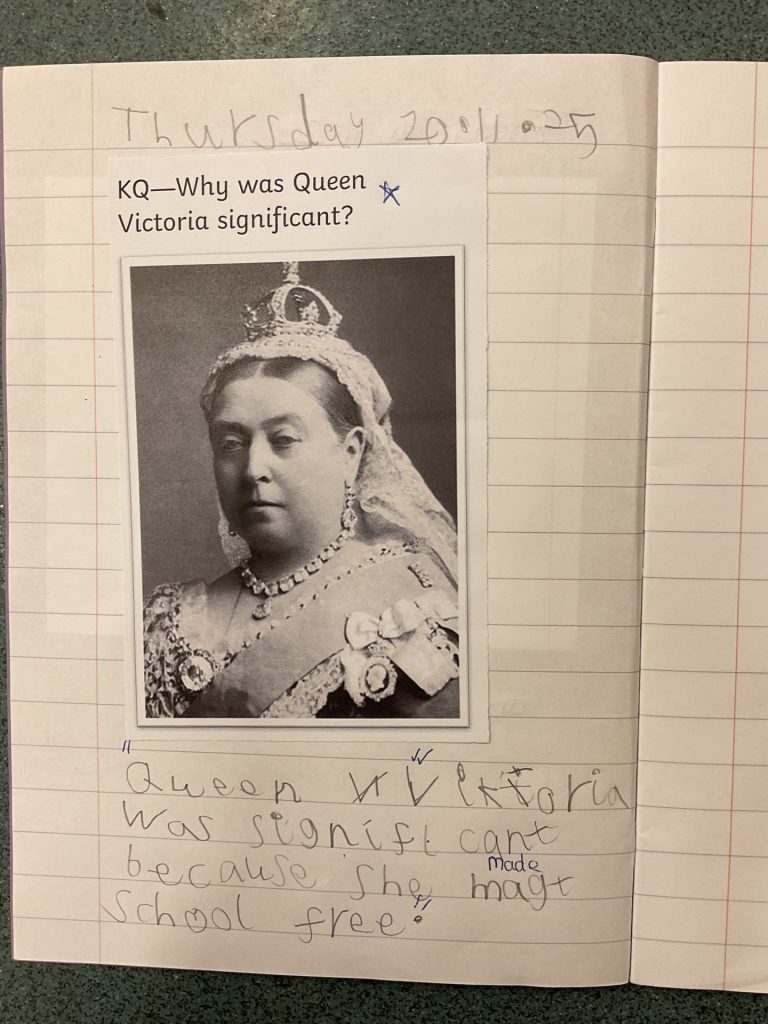 Thursday 20.11.25
KQ—Why was Queen
Victoria significant?
Queen Viktoria
was signifi cant
because she magt
made
school free.